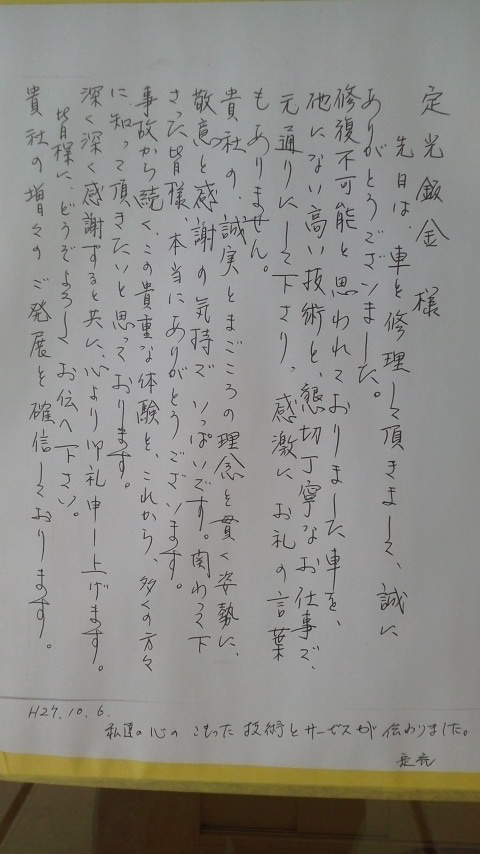 定光鈑金　様
先日は、車を修理して頂きまして、誠に
ありがとうございました。
修復不可能と思われておりました車を、
他にない高い技術と、懇切丁寧なお仕事で、
元通りにして下さり、感激にお礼の言葉
もありません。
貴社の、誠実とまごころの理念を貫く姿勢に、
敬意と感謝の気持でいっぱいです。関わって下
さった皆様、本当にありがとうございます。
事故から続く、この貴重な体験を、これから、多くの方々
に知って頂きたいと思っております。
深く深く感謝すると共に、心より御礼申し上げます。
皆様に、どうぞよろしくお伝へ下さい。
貴社の増々のご発展を確信しております。
H27.10.6.
私達の心のこもった技術とサービスが伝わりました。
定光